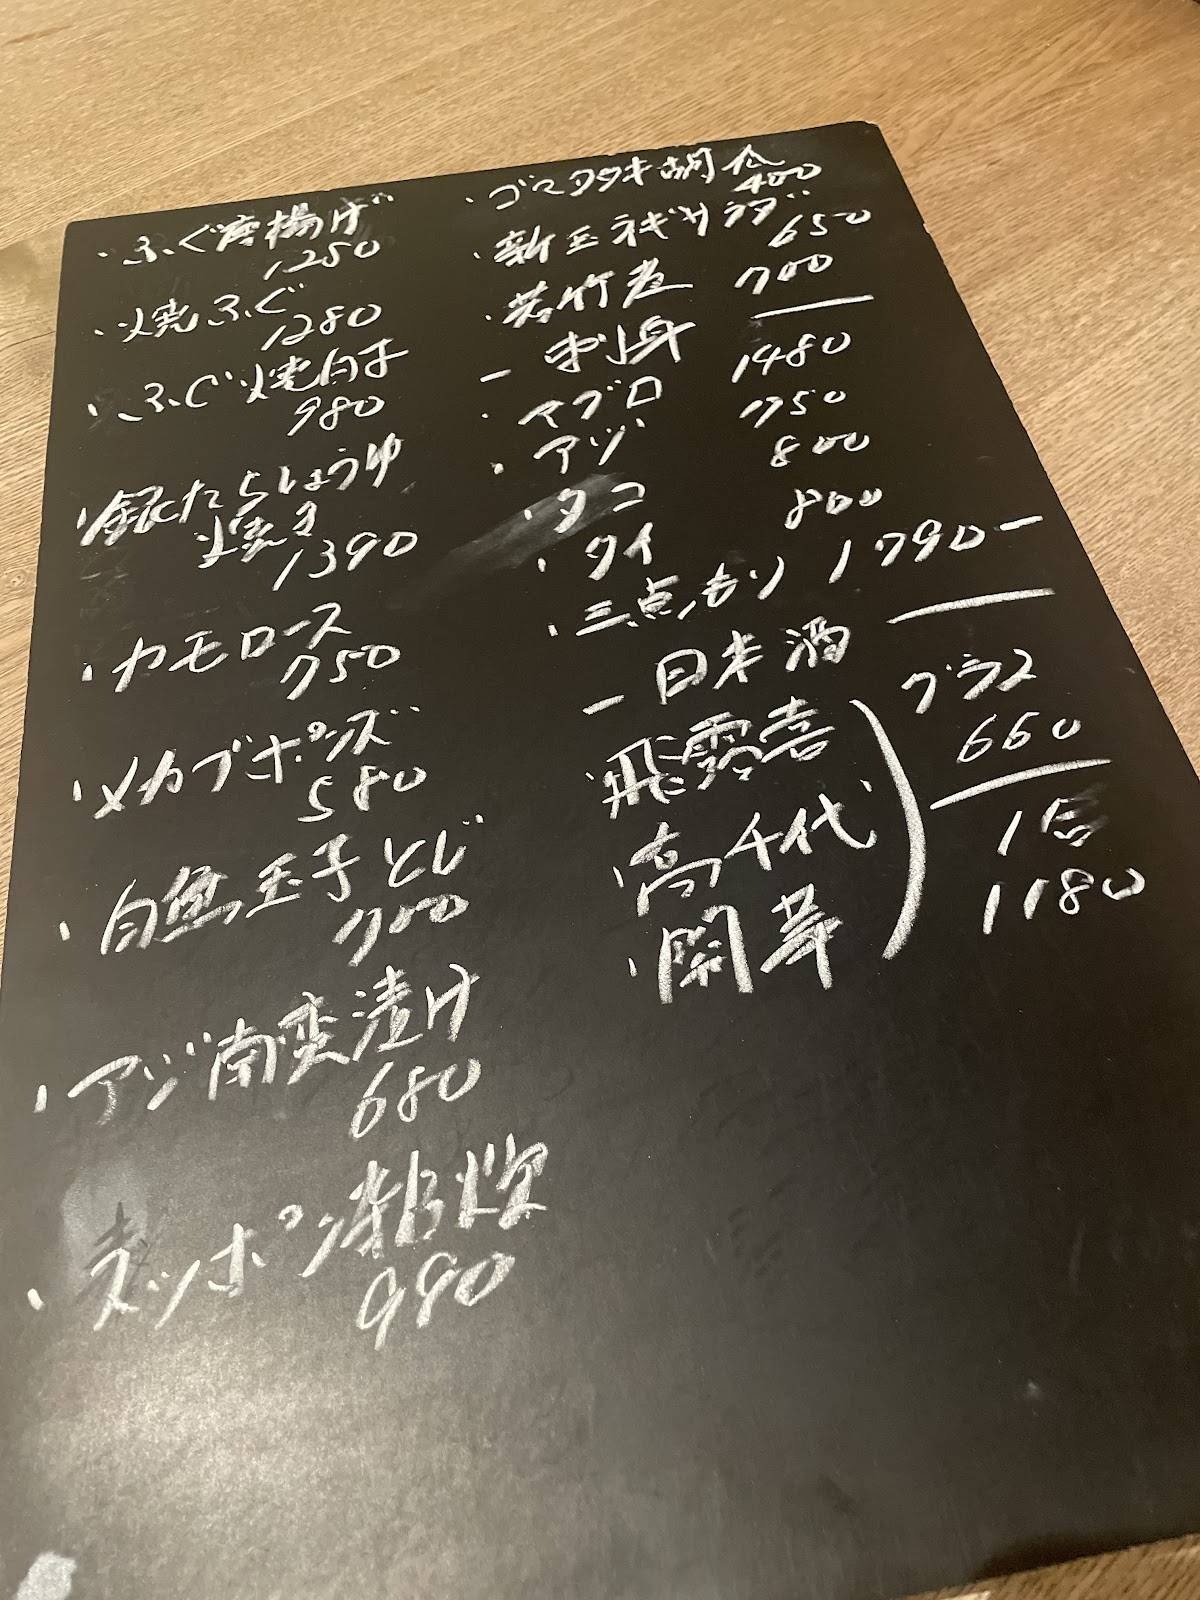 ・ふぐ唐揚げ
1250
・焼ふぐ
1280
・ふぐ焼白子
980
・銀たらしょうゆ
焼き
1390
・カモロース
750
・メカブポンズ
580
・白魚玉子とじ
700
・アジ南蛮漬け
680
・スッポン雑炊
990
・ゴマタタキ胡瓜
400
・新玉ネギサラダ
650
・若竹煮 700
ー刺身
・マグロ 1480
・アジ 750
・タコ 800
・タイ 800
・三点もり 1790ー
ー日本酒
・飛露喜
・高千代
・開華
グラス
660
1合
1180